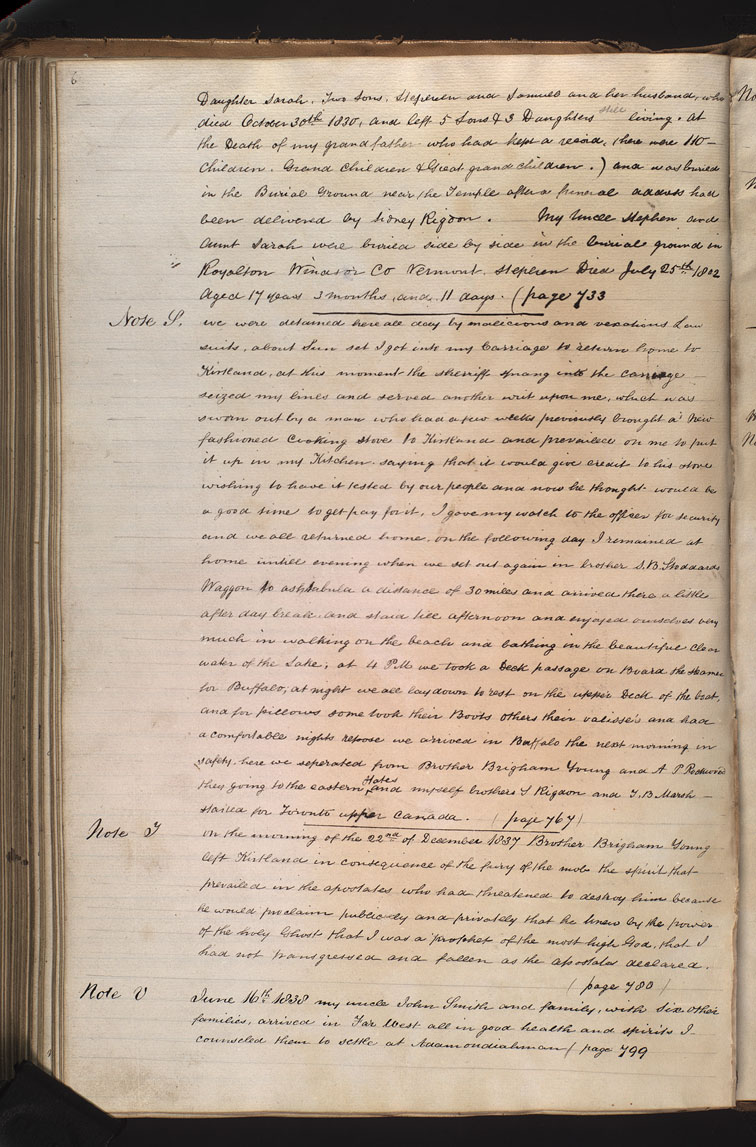 6
Daughter Sarah, Two Sons, Stephen and Samuel and her husband, who
died October 30th 1830, and left 5 Sons & 3 Daughters still living. At
the Death of my grandfather who had kept a record, there were 110-
Children, Grand Children & Great grand children.) and was buried
in the Burial Ground near the Temple after a funeral address had
been delivered by Sidney Rigdon. My Uncle Stephen and
Aunt Sarah were buried side by side in the burial ground in
Royalton Windsor Co Vermont. Stephen Died July 25th 1802
Aged 17 years 3 months, and 11 days. (page 733
Note S. we were detained here all day by malicious and vexatious Law
suits, about Sun set I got into my Carriage to return home to
Kirtland, at this moment the sherriff sprang into the carriage
seized my lines and served another writ upon me, which was
sworn out by a man who had a few weeks previously brought a new
fashioned Cooking stove to Kirtland and prevailed on me to put
it up in my Kitchen saying that it would give credit to his stove
wishing to have it tested by our people and now he thought would be
a good time to get pay for it, I gave my watch to the officer for security
and we all returned home, on the following day I remained at
home untill evening when we set out again in brother S. B. Stoddards
Waggon to ashtabula a distance of 30 miles and arrived there a little
after day break and staid till afternoon and enjoyed ourselves very
much in walking on the beach and bathing in the beautiful clear
water of the Lake, at 4 P.M we took a Deck passage on Board the steamer
for Buffalo, at night we all lay down to rest on the upper Deck of the boat,
and for pillows some took their Boots others their valisse's and had
a comfortable nights repose we arrived in Buffalo the next morning in
safety, here we seperated from Brother Brigham Young and A P Rockwood
they going to the eastern States and myself brothers S Rigdon and T. B. Marsh
started for Toronto upper canada. (page 767)
Note T on the morning of the 22nd of December 1837 Brother Brigham Young
left Kirtland in consequence of the fury of the mob the spirit that
prevailed in the apostates who had threatened to destroy him because
he would proclaim publicly and privately that he knew by the power
of the holy Ghost that I was a prophet of the most high God, that I
had not transgressed and fallen as the apostates declared.
(page 780)
Note V June 16th 1838 my uncle John Smith and family, with six other
families, arrived in Far West all in good health and spirits I
counseled them to settle at Adamondiahman (page 799